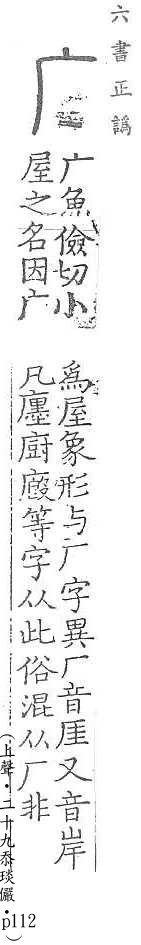 六書正譌
广
广魚儉切小
屋之名因广
爲屋象形与厂字異厂音厓又音岸
凡廛厨廄等字从此俗混从厂非
（上聲・二十九忝琰儼・p112）